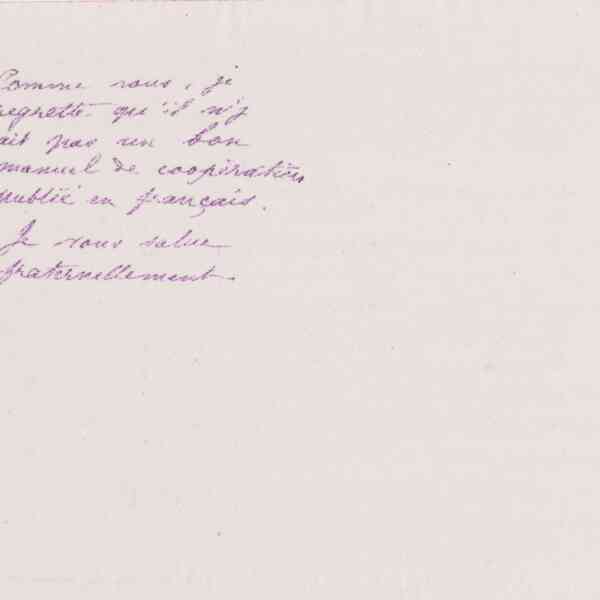 Comme vous, je
regrette qu'il n'y
ait pas un bon
manuel de coopération
publié en français.
Je vous salue
fraternellement.